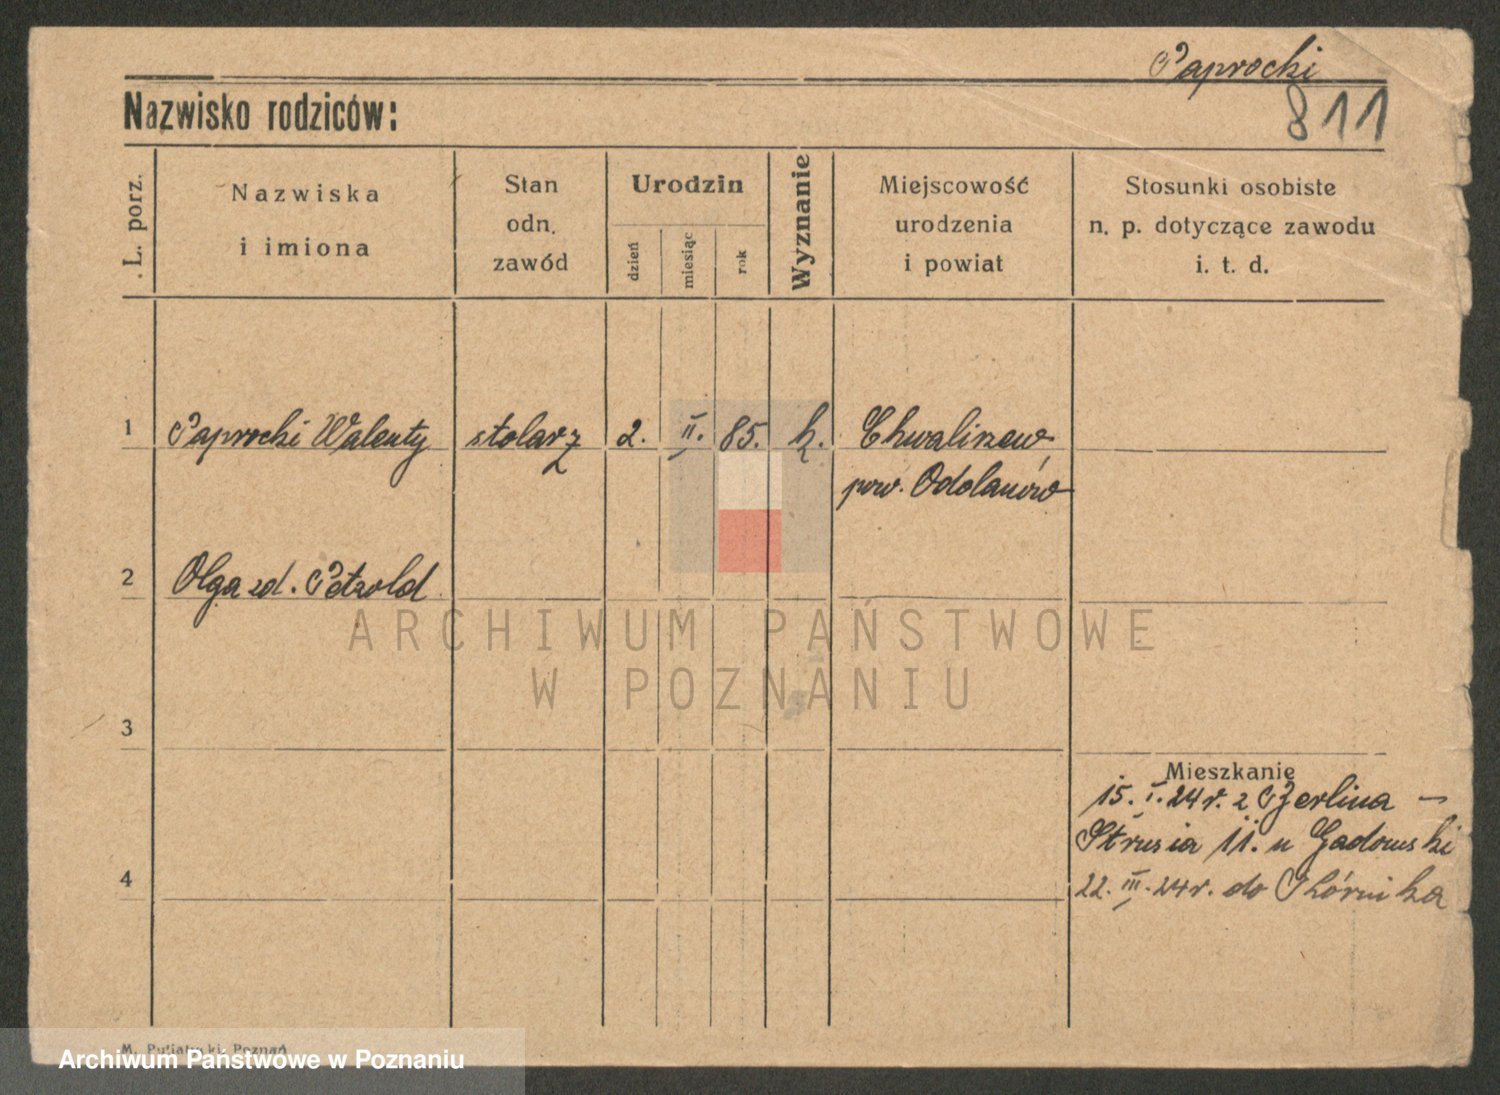 Paprocki
811
Nazwisko rodziców:
L. porz.
Nazwiska
i imiona
Stan
odn.
zawód
Urodzin
dzień
miesiąc
rok
Wyznanie
Miejscowość
urodzenia
i powiat
Stosunki osobiste
n. p. dotyczące zawodu
i. t. d.
1
Paprocki Walenty
stolarz
2.
II.
85.
k.
Chwaliszew
pow. Odolanów
2
Olga zd. Petzold
ARCHIWUM PAŃSTWOWE
W POZNANIU
3
Mieszkanie
15. I. 24 r. z Berlina –
Strusia 11. u Gadowski
4
22. III. 24 r. do Kórnika
M. Putiatycki, Poznań
Archiwum Państwowe w Poznaniu